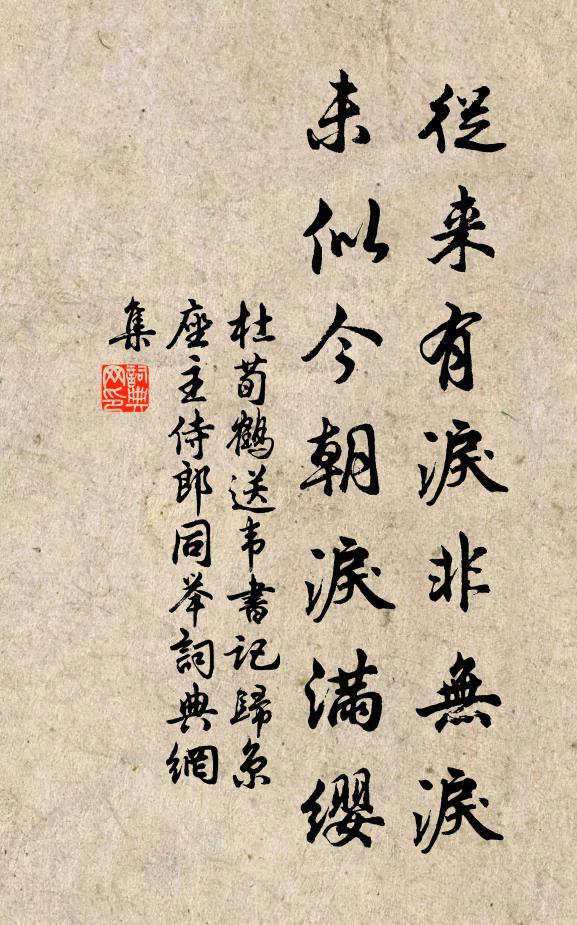 從来有淚非無淚
未似今朝淚滿缨
杜荀鶴送韦書记歸京
座主侍郎同举詞典網
集
詞典
网印